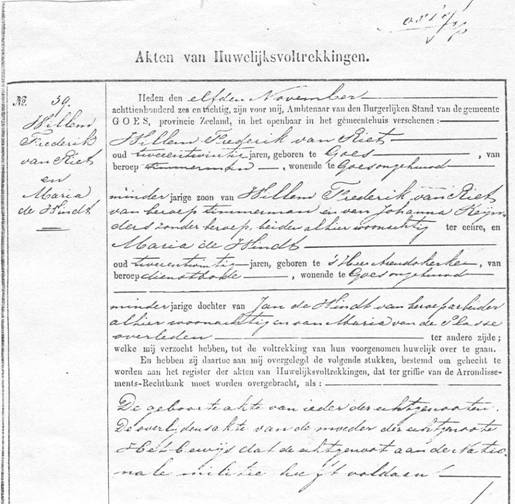 Akten van Huwelijksvoltrekkingen.
No. 39.
Willem
Frederik
van Riet
en
Maria
de Hindt
Heden den elfden November
achttienhonderd zes en tachtig, zijn voor mij, Ambtenaar van den Burgerlijken Stand van de gemeente
GOES, provincie Zeeland, in het openbaar in het gemeentehuis verschenen:
Willem Frederik van Riet
oud tweeentwintig jaren, geboren te Goes, van
beroep timmerman, wonende te Goes ongehuwd
minderjarige zoon van Willem Frederik van Riet
van beroep timmerman en van Johanna Reyn
ders zonder beroep, beiden alhier woonachtig ter eenre, en
Maria de Hindt
oud tweeentwintig jaren, geboren te 's Heer Arendskerke, van
beroep dienstbode, wonende te Goes ongehuwd
minderjarige dochter van Jan de Hindt van beroep arbeider
alhier woonachtig en van Maria van de Plasse
overleden ter andere zijde;
welke mij verzocht hebben, tot de voltrekking van hun voorgenomen huwelijk over te gaan.
En hebben zij daartoe aan mij overgelegd de volgende stukken, bestemd om gehecht te
worden aan het register der akten van Huwelijksvoltrekkingen, dat ter griffie van de Arrondisse-
ments-Rechtbank moet worden overgebracht, als:
De geboorteakte van ieder der echtgenooten.
De overlijdensakte van de moeder der echtgenoote
Het bewijs dat de echtgenoot aan de Natio
nale militie heeft voldaan